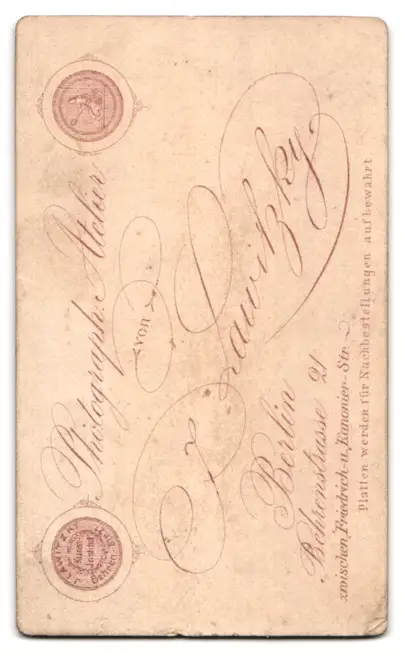 Photograph. Atelier
von
Lawitzky
Berlin
Behrenstrasse 21
zwischen Friedrich- u. Kanonier-Str.
Platten werden für Nachbestellungen aufbewahrt